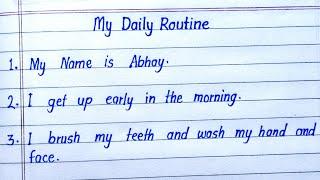 My Daily Routine
1. My Name is Abhay.
2. I get up early in the morning.
3. I brush my teeth and wash my hand and
face.